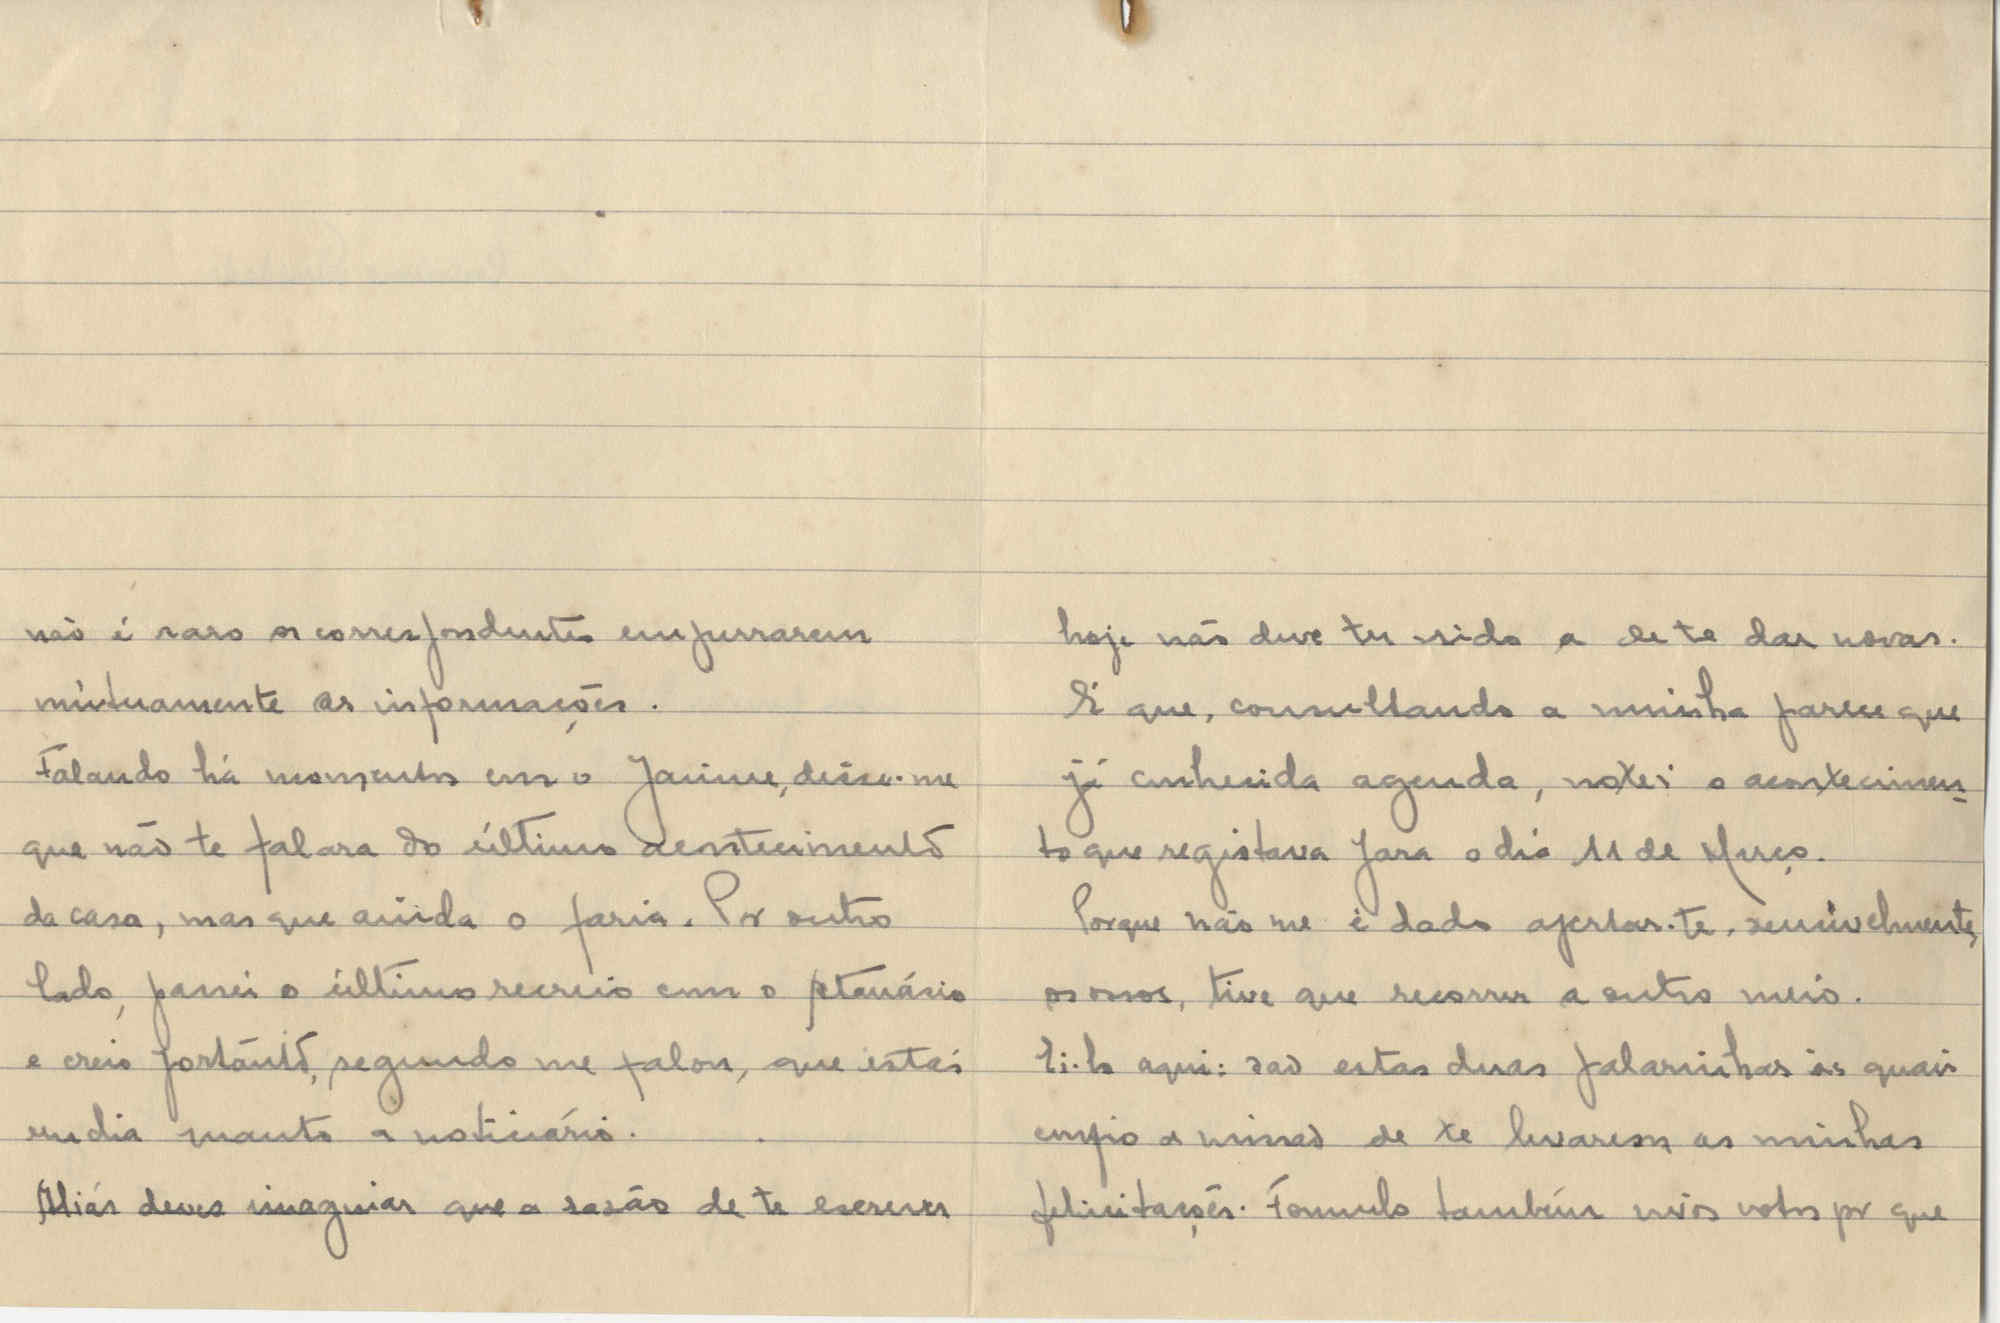 não é raro os correspondentes empurrarem
mùtuamente as informações.
Falando há momentos com o Jaime, disse-me
que não te falara do último acontecimento
da casa, mas que ainda o faria. Por outro
lado, passei o último recreio com o
e creio portanto, segundo me falou, que estás
em dia quanto a noticiário.
Aliás deves imaginar que a razão de te escrever
hoje não deve ter sido a de te dar novas.
É que, consultando a minha parece que
já conhecida agenda, notei o acontecimen-
to que registava para o dia 11 de Março.
Porque não me é dado apertar-te, sensìvelmente,
os ossos, tive que recorrer a outro meio.
Ei-lo aqui: são estas duas palavrinhas às quais
confio a missão de te levarem as minhas
felicitações. Formulo também vivos votos por que